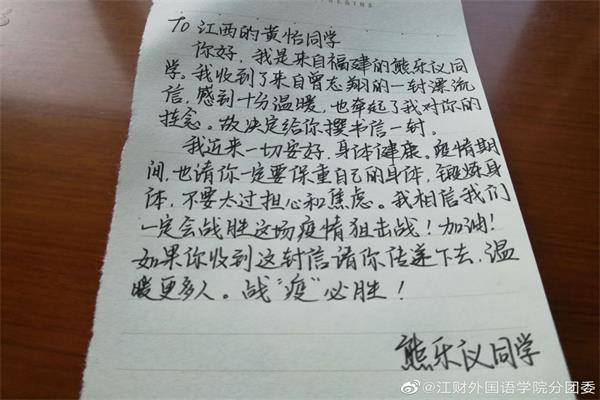 To 江西的黄怡同学
你好，我是来自福建的熊乐议同
学。我收到了来自曾志翔的一封漂流
信，感到十分温暖，也牵起了我对你的
挂念。故决定给你撰书信一封。
我近来一切安好，身体健康。疫情期
间，也请你一定要保重自己的身体，锻炼身
体，不要太过担心和焦虑。我相信我们
一定会战胜这场疫情狙击战！加油！
如果你收到这封信请你传递下去，温
暖更多人。战“疫”必胜！
熊乐议同学
@江财外国语学院分团委